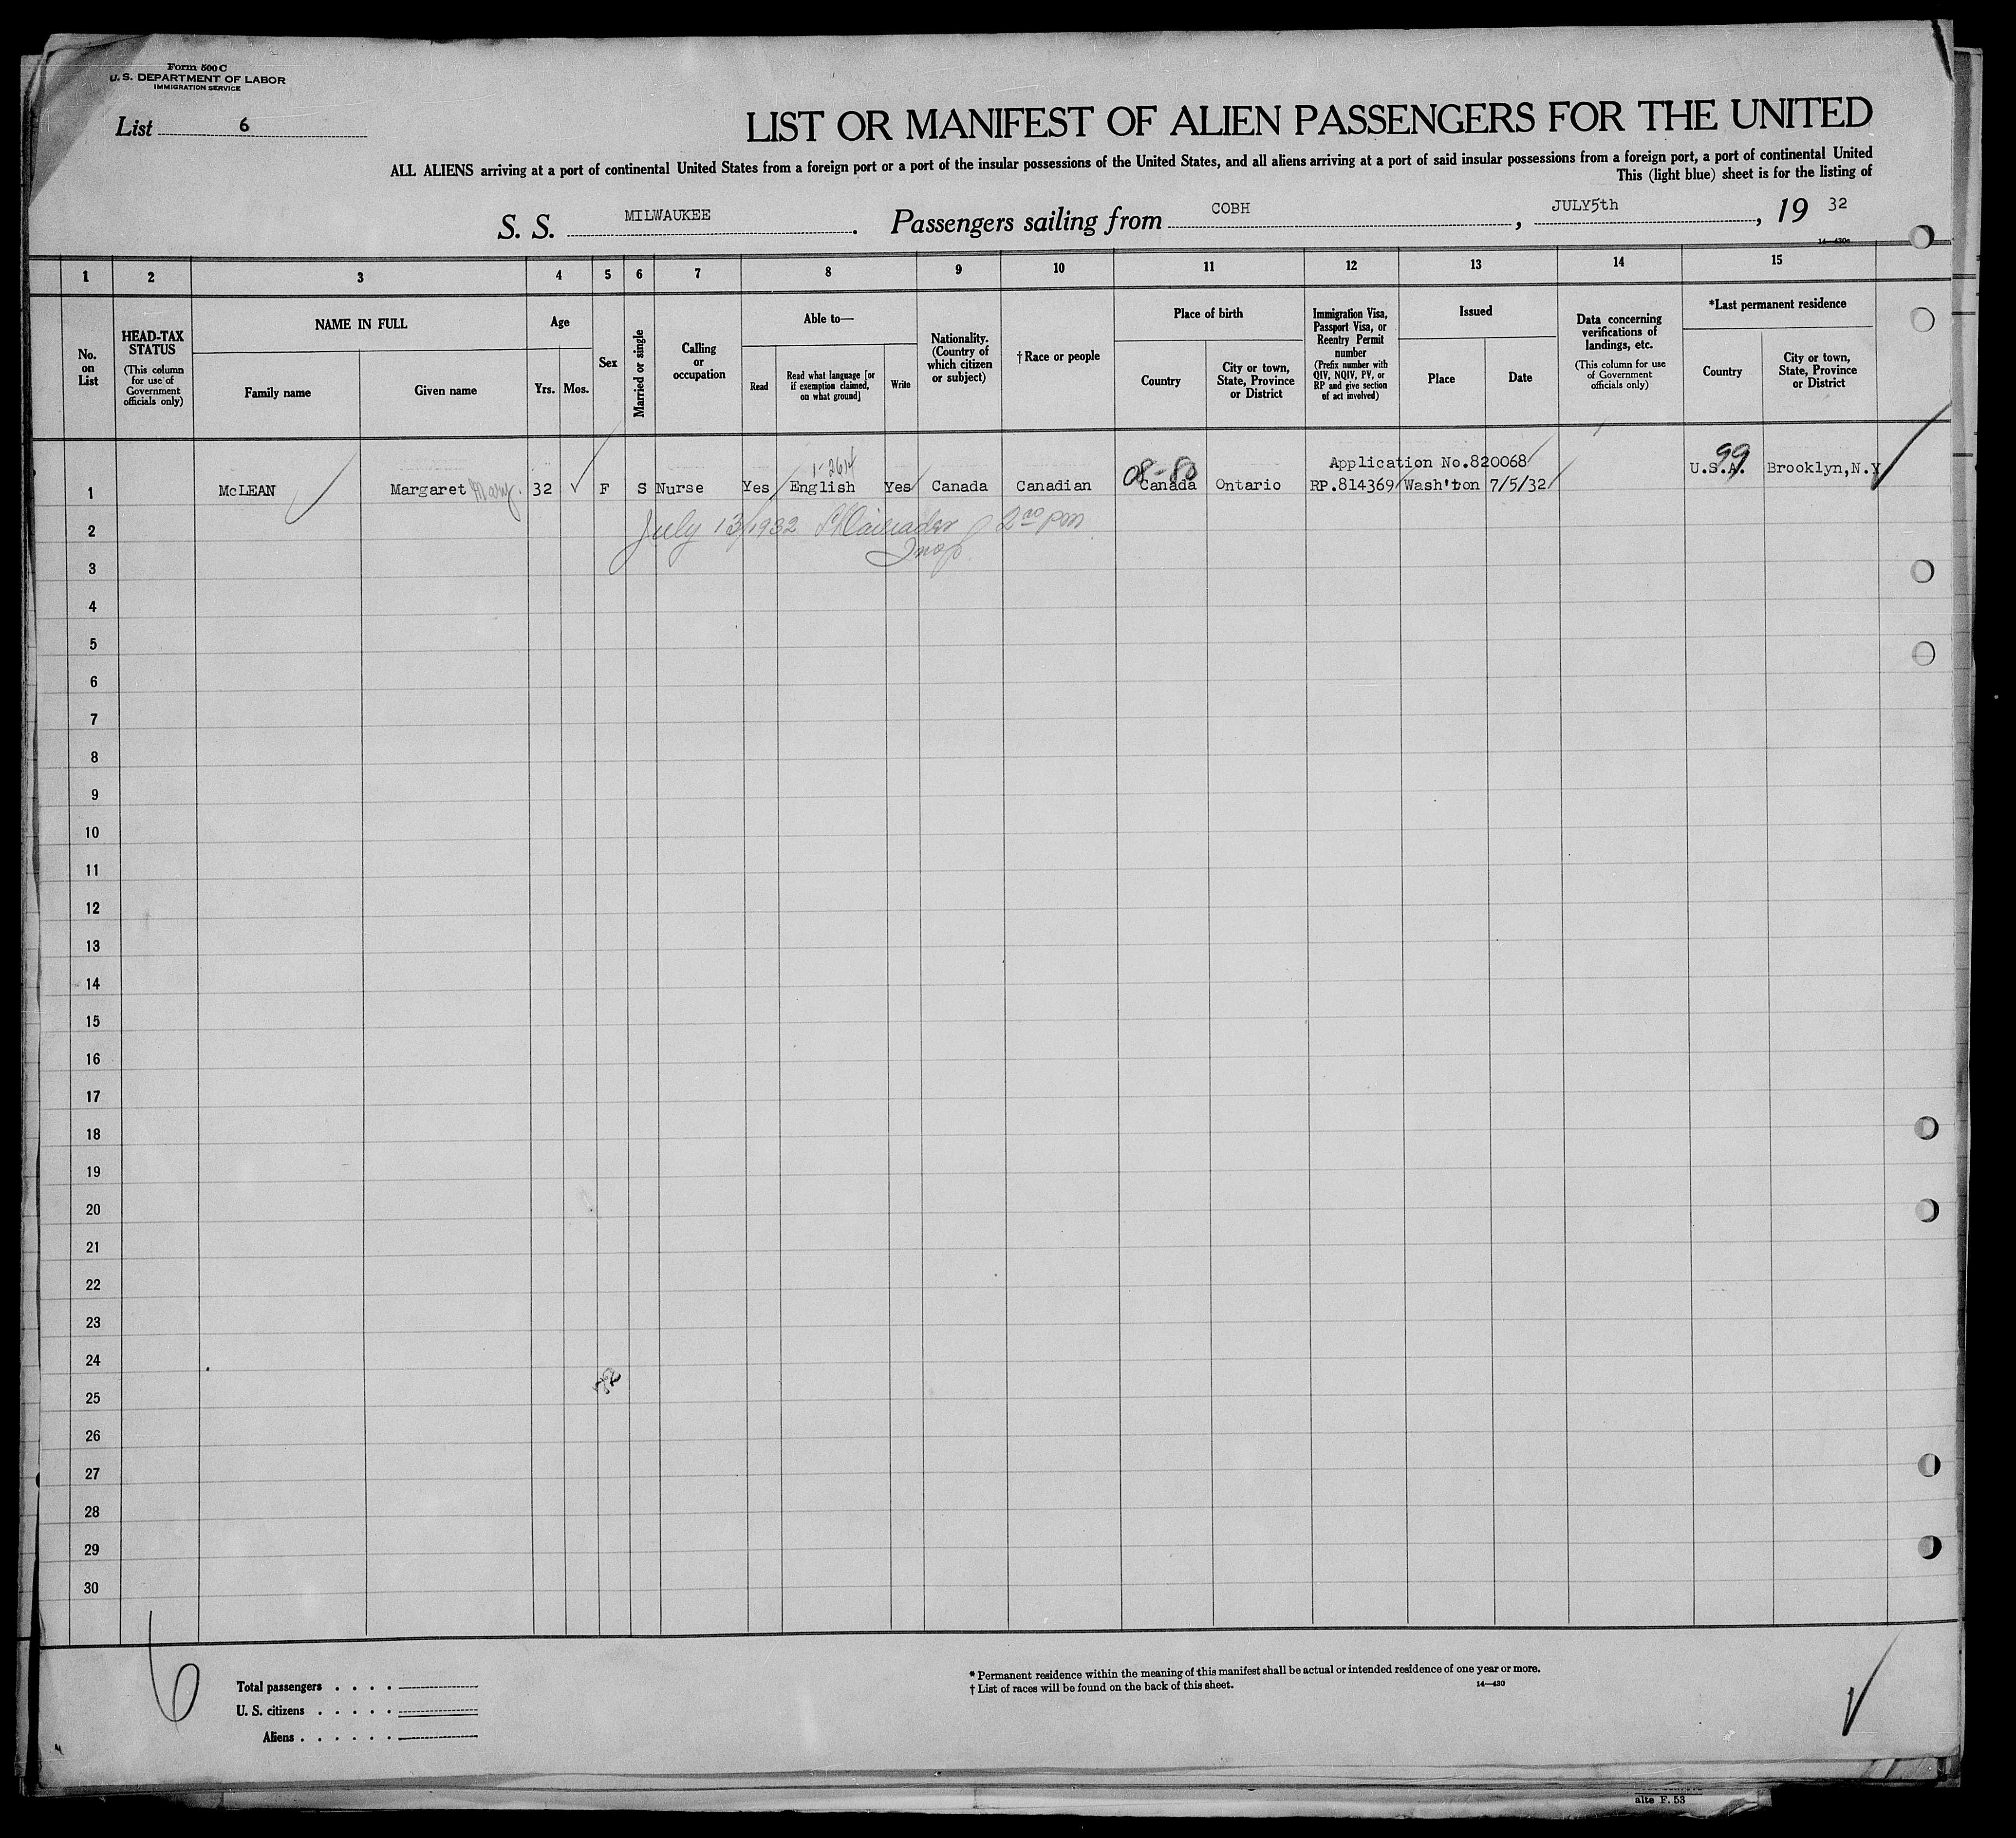 Form 500 C
U. S. DEPARTMENT OF LABOR
IMMIGRATION SERVICE
List 6
LIST OR MANIFEST OF ALIEN PASSENGERS FOR THE UNITED
ALL ALIENS arriving at a port of continental United States from a foreign port or a port of the insular possessions of the United States, and all aliens arriving at a port of said insular possessions from a foreign port, a port of continental United
This (light blue) sheet is for the listing of
S. S. MILWAUKEE. Passengers sailing from COBH, JULY5th, 19 32
14—430c
1 2 3 4 5 6 7 8 9 10 11 12 13 14 15
No. on List
HEAD-TAX STATUS
(This column for use of Government officials only)
NAME IN FULL
Family name
Given name
Age
Yrs. Mos.
Sex
Married or single
Calling or occupation
Able to—
Read
Read what language [or if exemption claimed, on what ground]
Write
Nationality. (Country of which citizen or subject)
†Race or people
Place of birth
Country
City or town, State, Province or District
Immigration Visa, Passport Visa, or Reentry Permit number
(Prefix number with QIV, NQIV, PV, or RP and give section of act involved)
Issued
Place
Date
Data concerning verifications of landings, etc.
(This column for use of Government officials only)
*Last permanent residence
Country
City or town, State, Province or District
1-2614 08-80 Application No.820068 99 U.S.A. Brooklyn,N.Y
1 McLEAN Margaret Mary. 32 F S Nurse Yes English Yes Canada Canadian Canada Ontario RP.814369 Wash'ton 7/5/32
July 13/1932 2 00 pm
Insp
2
3
4
5
6
7
8
9
10
11
12
13
14
15
16
17
18
19
20
21
22
23
24
25
26
27
28
29
30
6
Total passengers . . . .
U. S. citizens . . . . .
Aliens . . . . . .
* Permanent residence within the meaning of this manifest shall be actual or intended residence of one year or more.
† List of races will be found on the back of this sheet.
14—430
alte F. 53